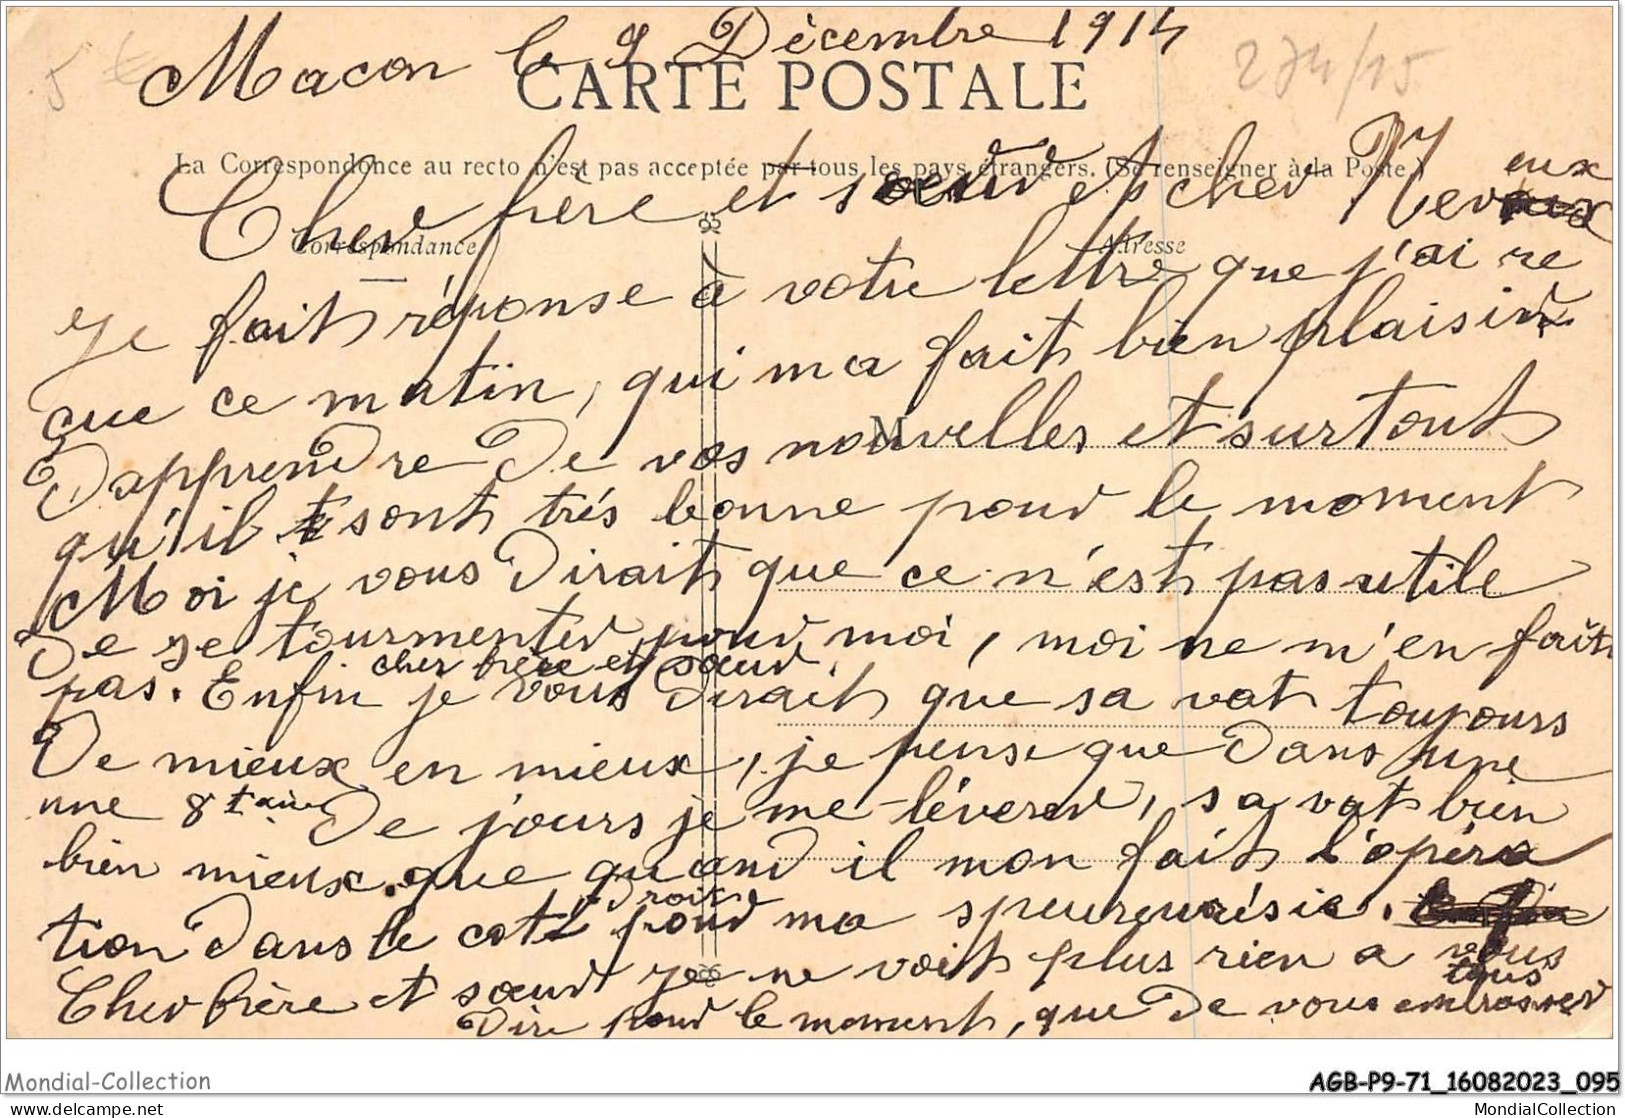 Macon le 9 Décembre 1914
274/15
5 €
CARTE POSTALE
La Correspondance au recto n'est pas acceptée par tous les pays étrangers. (Se renseigner à la Poste.)
Correspondance
Adresse
M
Cher frère et sœur et cher Neveux
Je fait réponse à votre lettre que j'ai re
que ce matin, qui ma fait bien plaisir
D'apprendre De vos nouvelles et surtout
qu'il sont trés bonne pour le moment
Moi je vous Dirait que ce n'est pas utile
De se tourmenter pour moi, moi ne m'en fait
pas. Enfin cher frère et sœur je vous Dirait que sa vat toujours
De mieux en mieux, je pense que Dans une
une 8taine De jours je me lèverer, sa vat bien
bien mieux que quand il mon fait l'opéra
tion Dans le coté Droit pour ma speureurésie.
Cher frère et sœur je ne voit plus rien a vous
Dire pour le moment, que De vous tous embrasser
Mondial-Collection
AGB-P9-71_16082023_095
www.delcampe.net
MondialCollection